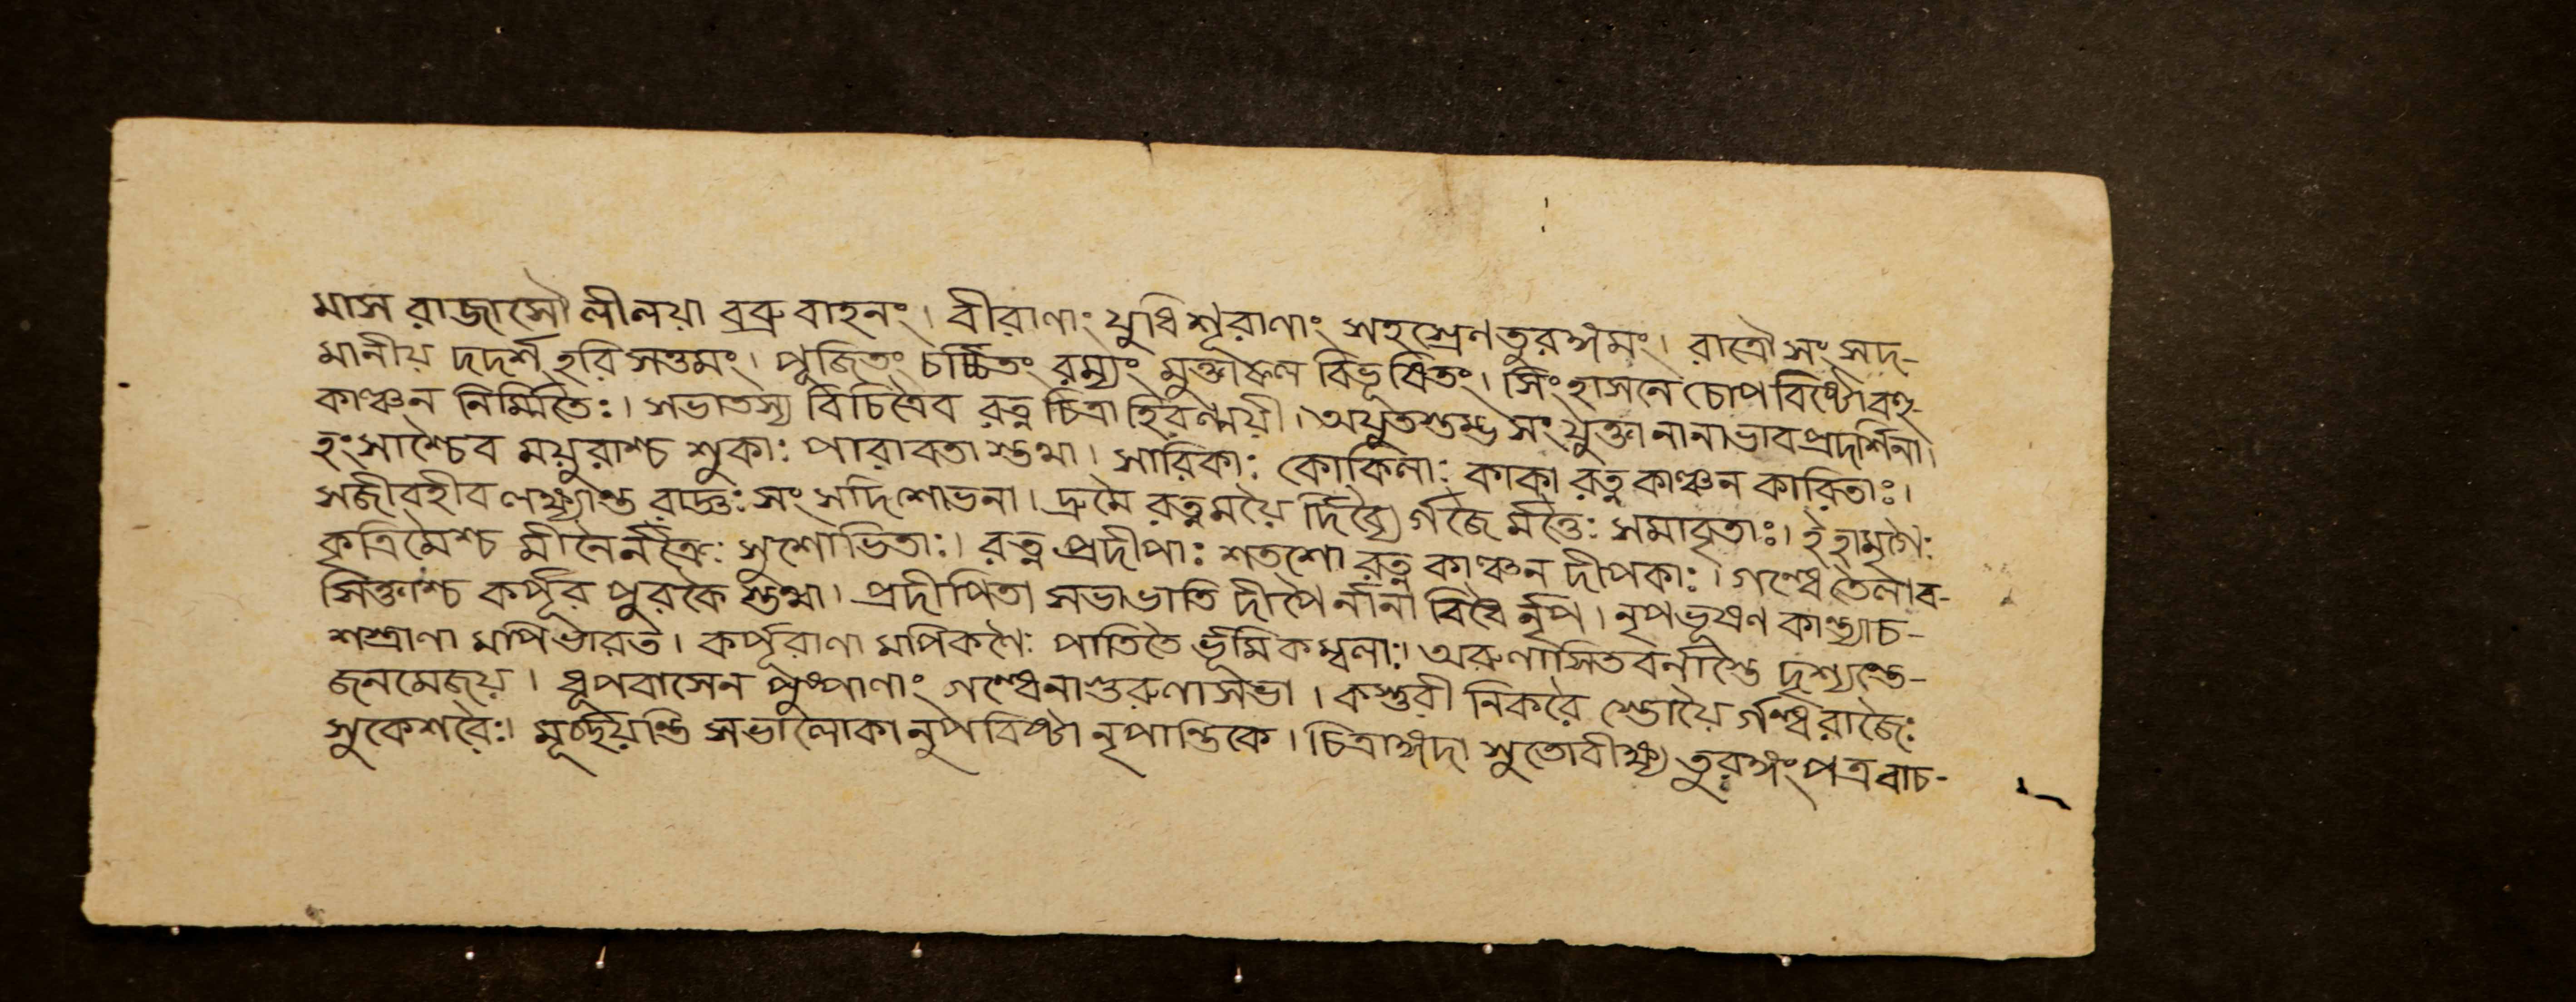 মাস রাজাসৌ লীলয়া বব্রুবাহনং। বীরাণাং যুধি শূরাণাং সহস্রেণ তুরঙ্গমং। রাত্রৌ সংসদ-
মানীয় দদর্শ হরি সত্তমং। পূজিতং চর্চ্চিতং রম্যং মুক্তাফল বিভূষিতং। সিংহাসনে চোপবিষ্টো বহু-
কাঞ্চন নির্ম্মিতৈঃ। সভাতস্য বিচিত্রৈব রত্ন চিত্রা হিরণ্ময়ী। অযুতস্তম্ভ সংযুক্তা নানাভাব প্রদর্শিনা।
হংসাশ্চৈব ময়ুরাশ্চ শুকাঃ পারাবতা স্তথা। সারিকাঃ কোকিলাঃ কাকা রত্ন কাঞ্চন কারিতাঃ।
সজীবহীব লক্ষ্যন্তে রাজ্ঞঃ সংসদি শোভনা। দ্রুমৈ রত্নময়ৈ র্দিব্যৈ র্গজৈ র্মত্তৈঃ সমাবৃতাঃ। ইহামৃগৈঃ
কৃত্রিমৈশ্চ মীনৈর্নক্রৈঃ সুশোভিতাঃ। রত্ন প্রদীপাঃ শতশো রত্ন কাঞ্চন দীপকাঃ। গন্ধতৈলাব-
সিক্তাশ্চ কর্পূর পুরকৈ স্তথা। প্রদীপিতা সভাভাতি দীপৈ র্নানা বিধৈ র্নৃপ। নৃপভূষণ কান্ত্যাচ-
শস্ত্রাণা মপিভারত। কর্পূরাণা মপিকণৈঃ পাতিতৈ র্ভূমি কম্বলাঃ। অরুণাসিতবর্নাস্তৈ দৃশ্যন্তে-
জনমেজয়। ধূপবাসেন পুষ্পাণাং গন্ধেনাগুরুণাসভা। কস্তুরী নিকরৈ স্তোয়ৈ র্গন্ধরাজৈঃ
সুকেশরৈঃ। মূর্চ্ছয়ন্তি সভালোকা নুপবিষ্টা নৃপান্তিকে। চিত্রাঙ্গদা সুতোবীক্ষ্য তুরঙ্গং পত্রবাচ-